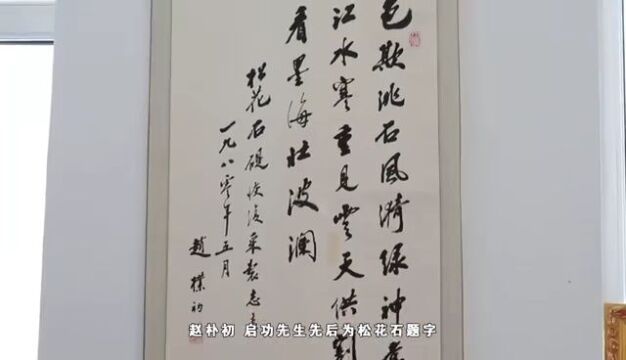 色欺洮石风漪绿神
江水寒重见云天供割
看墨海壮波澜
松花石砚恢复采製志喜
一九八零年五月
趙樸初
赵朴初 启功先生先后为松花石题字